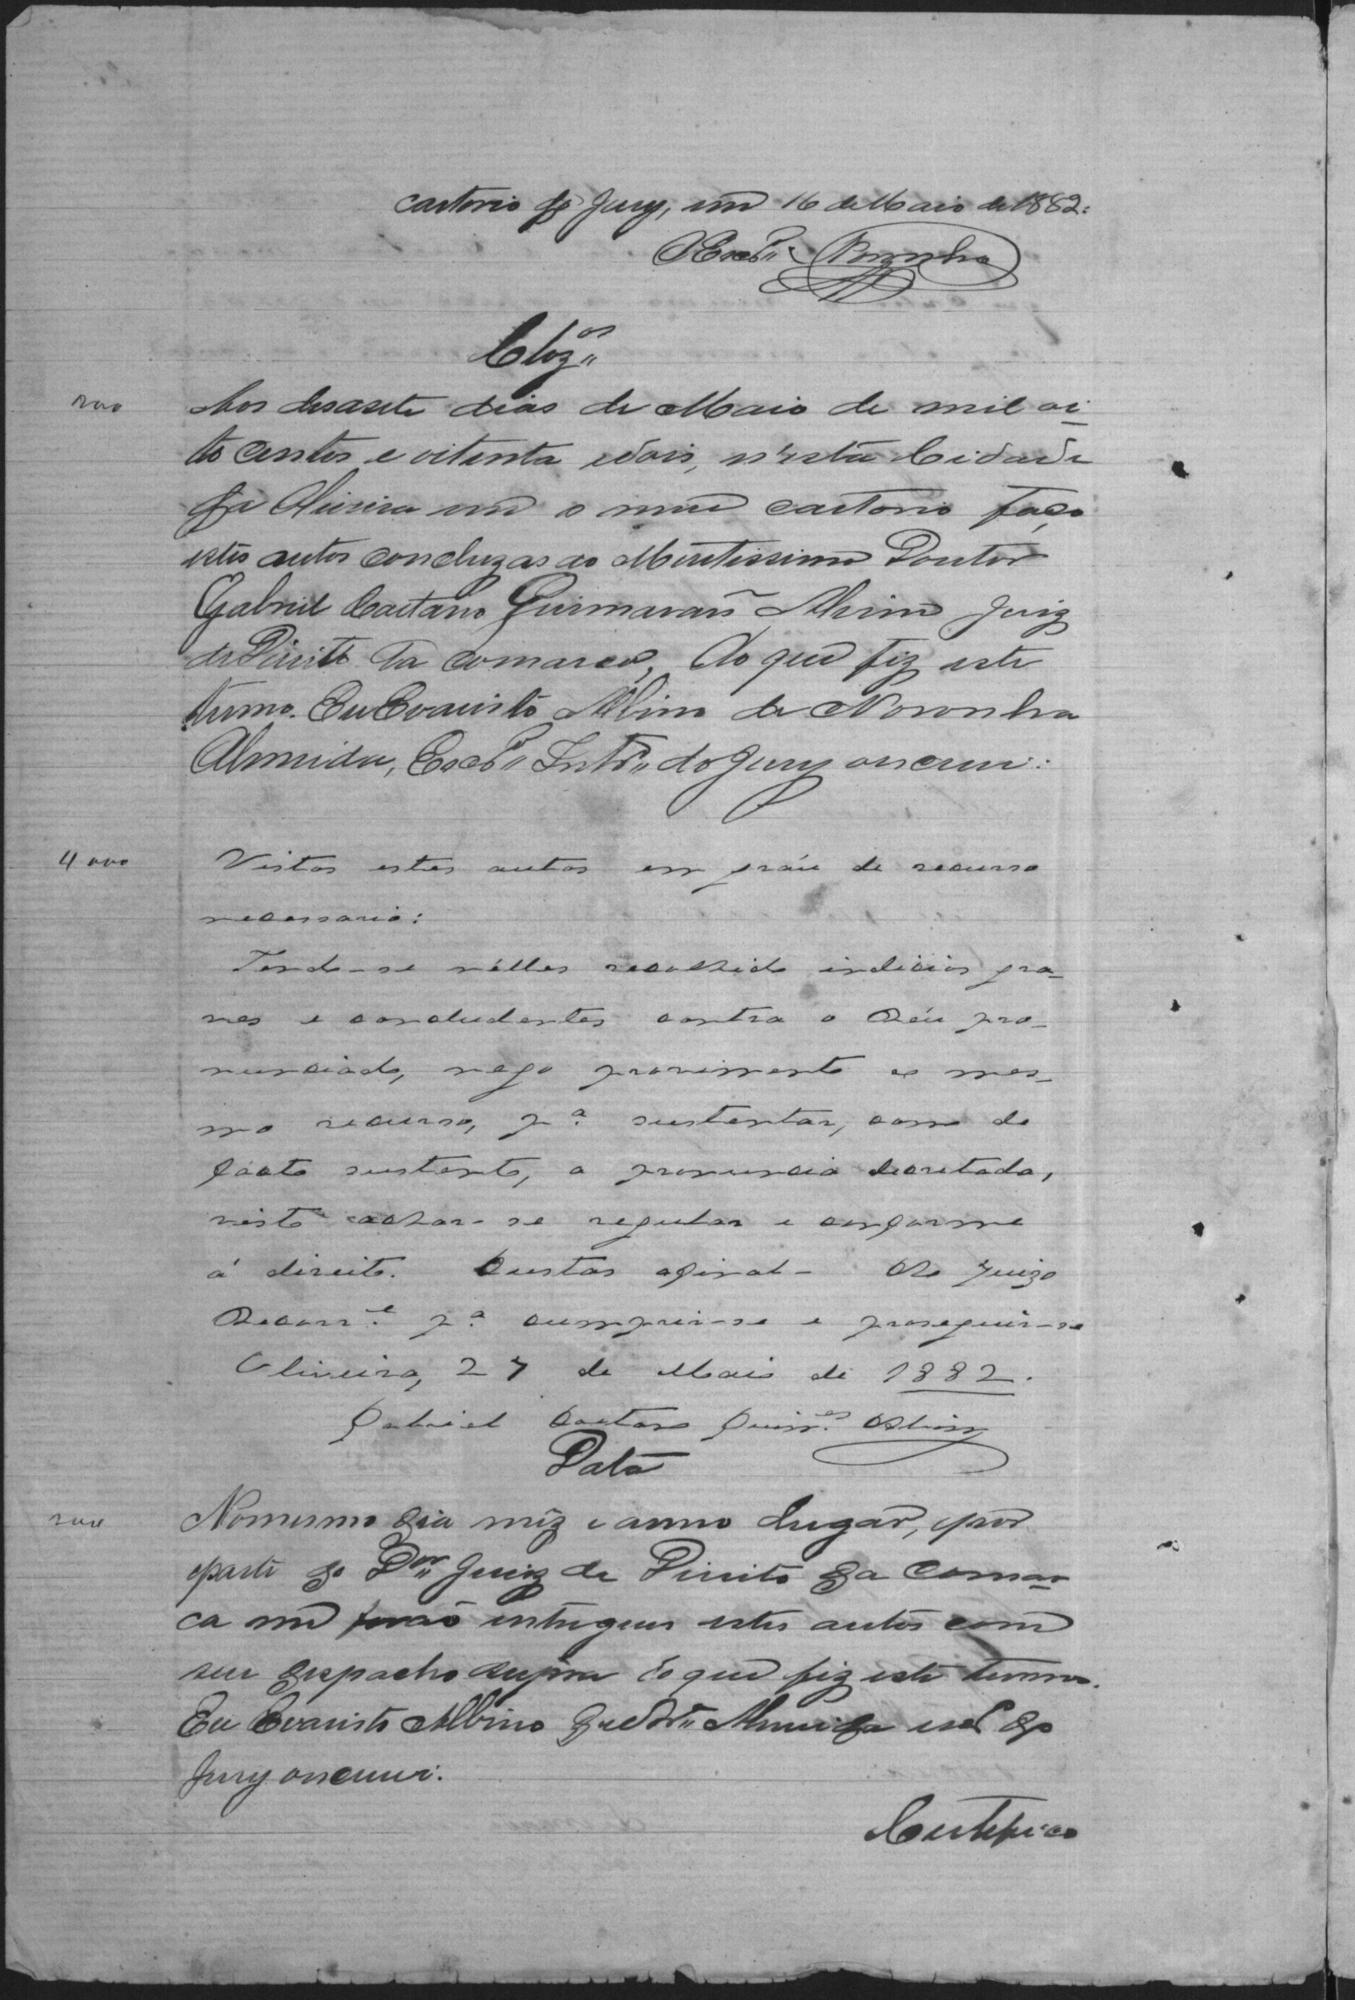 cartorio do Jury, em 16 de Maio de 1882.
O Escr.m Noronha
Clz.os
200
Aos desasete dias de Maio de mil oi-
to centos e oitenta e dois, n'esta Cidade
da Oliveira em o meu cartorio faço
estes autos concluzos ao Meritissimo Doutor
Gabriel Caetano Guimarães Alvim Juiz
de Direito da comarca, do que fiz este
termo. Eu Evaristo Albino de Noronha
Almeida, Escr.m Int.o do Jury o escrevi.
4000
Vistos estes autos em gráu de recurso
necessario:
Tendo-se n'elles recolhido indicios gra-
ves e concludentes contra o Réu pro-
nunciado, nego provimento ao mes-
mo recurso, p.a sustentar, como de
facto sustento, a pronuncia decretada,
visto achar-se regular e conforme
á direito. Custas afinal - Ao Juizo
Recorr.e p.a cumprir-se e proseguir-se
Oliveira, 27 de Maio de 1882.
Gabriel Caetano Guim.es Alvim
Data
200
No mesmo dia mez e anno lugar, por
parte do D.or Juiz de Direito da comar-
ca me forão entregues estes autos com
seu despacho supra do que fiz este termo.
Eu Evaristo Albino de Nor.a Almeida esc.m do
Jury o escrevi.
Certefico